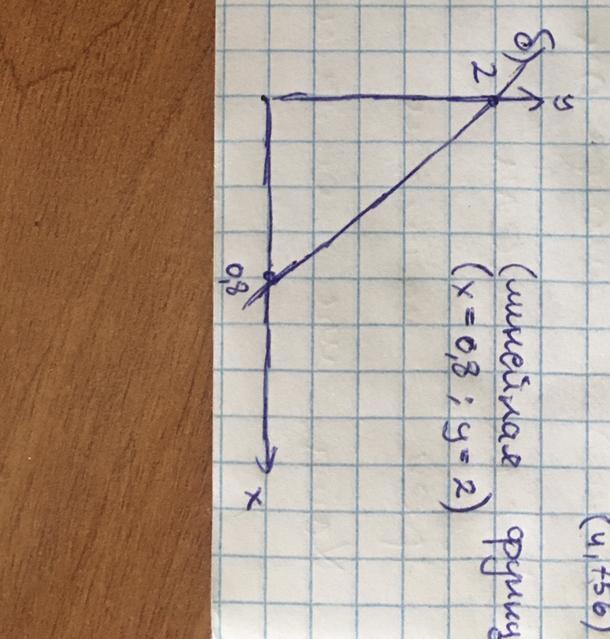 (4,+5б)
б)
(линейная функц
(x = 0,8 ; y = 2)
y
2
0,8
x